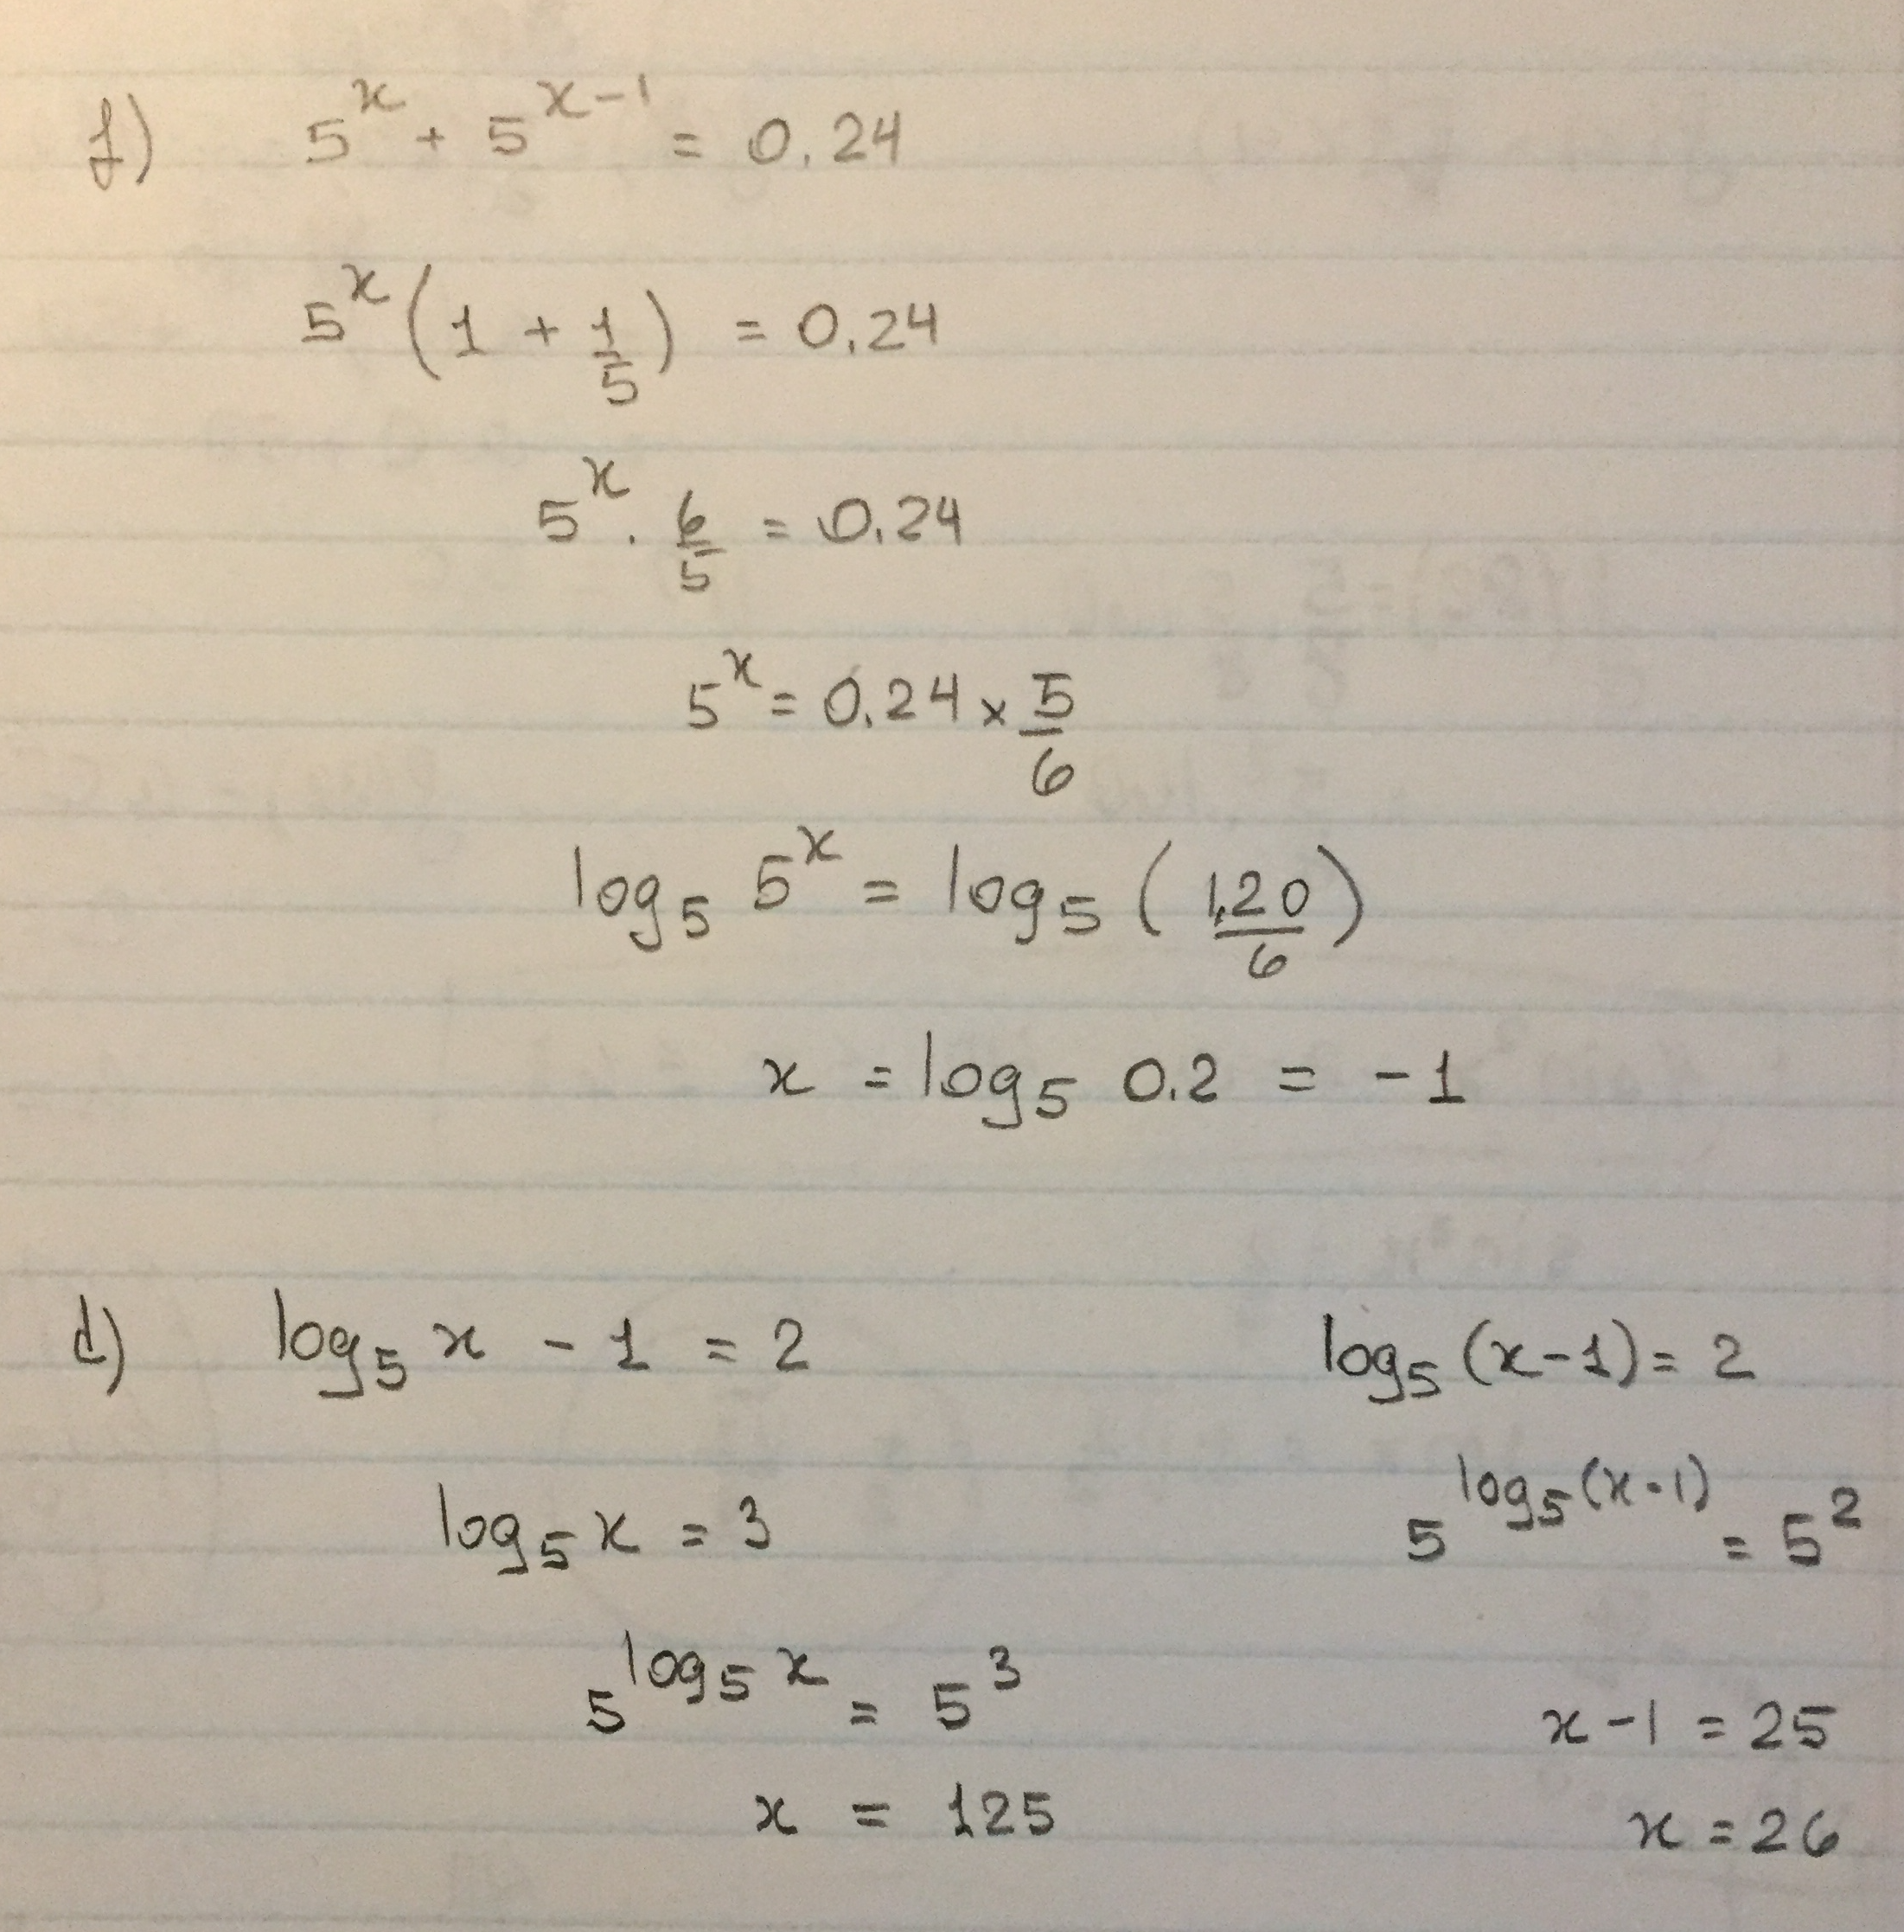 f) 5^x + 5^(x-1) = 0.24
5^x (1 + 1/5) = 0.24
5^x . 6/5 = 0.24
5^x = 0.24 × 5/6
log₅ 5^x = log₅ (1.20/6)
x = log₅ 0.2 = -1
d) log₅ x - 1 = 2
log₅ x = 3
5^(log₅ x) = 5^3
x = 125
log₅ (x-1) = 2
5^(log₅ (x-1)) = 5^2
x - 1 = 25
x = 26